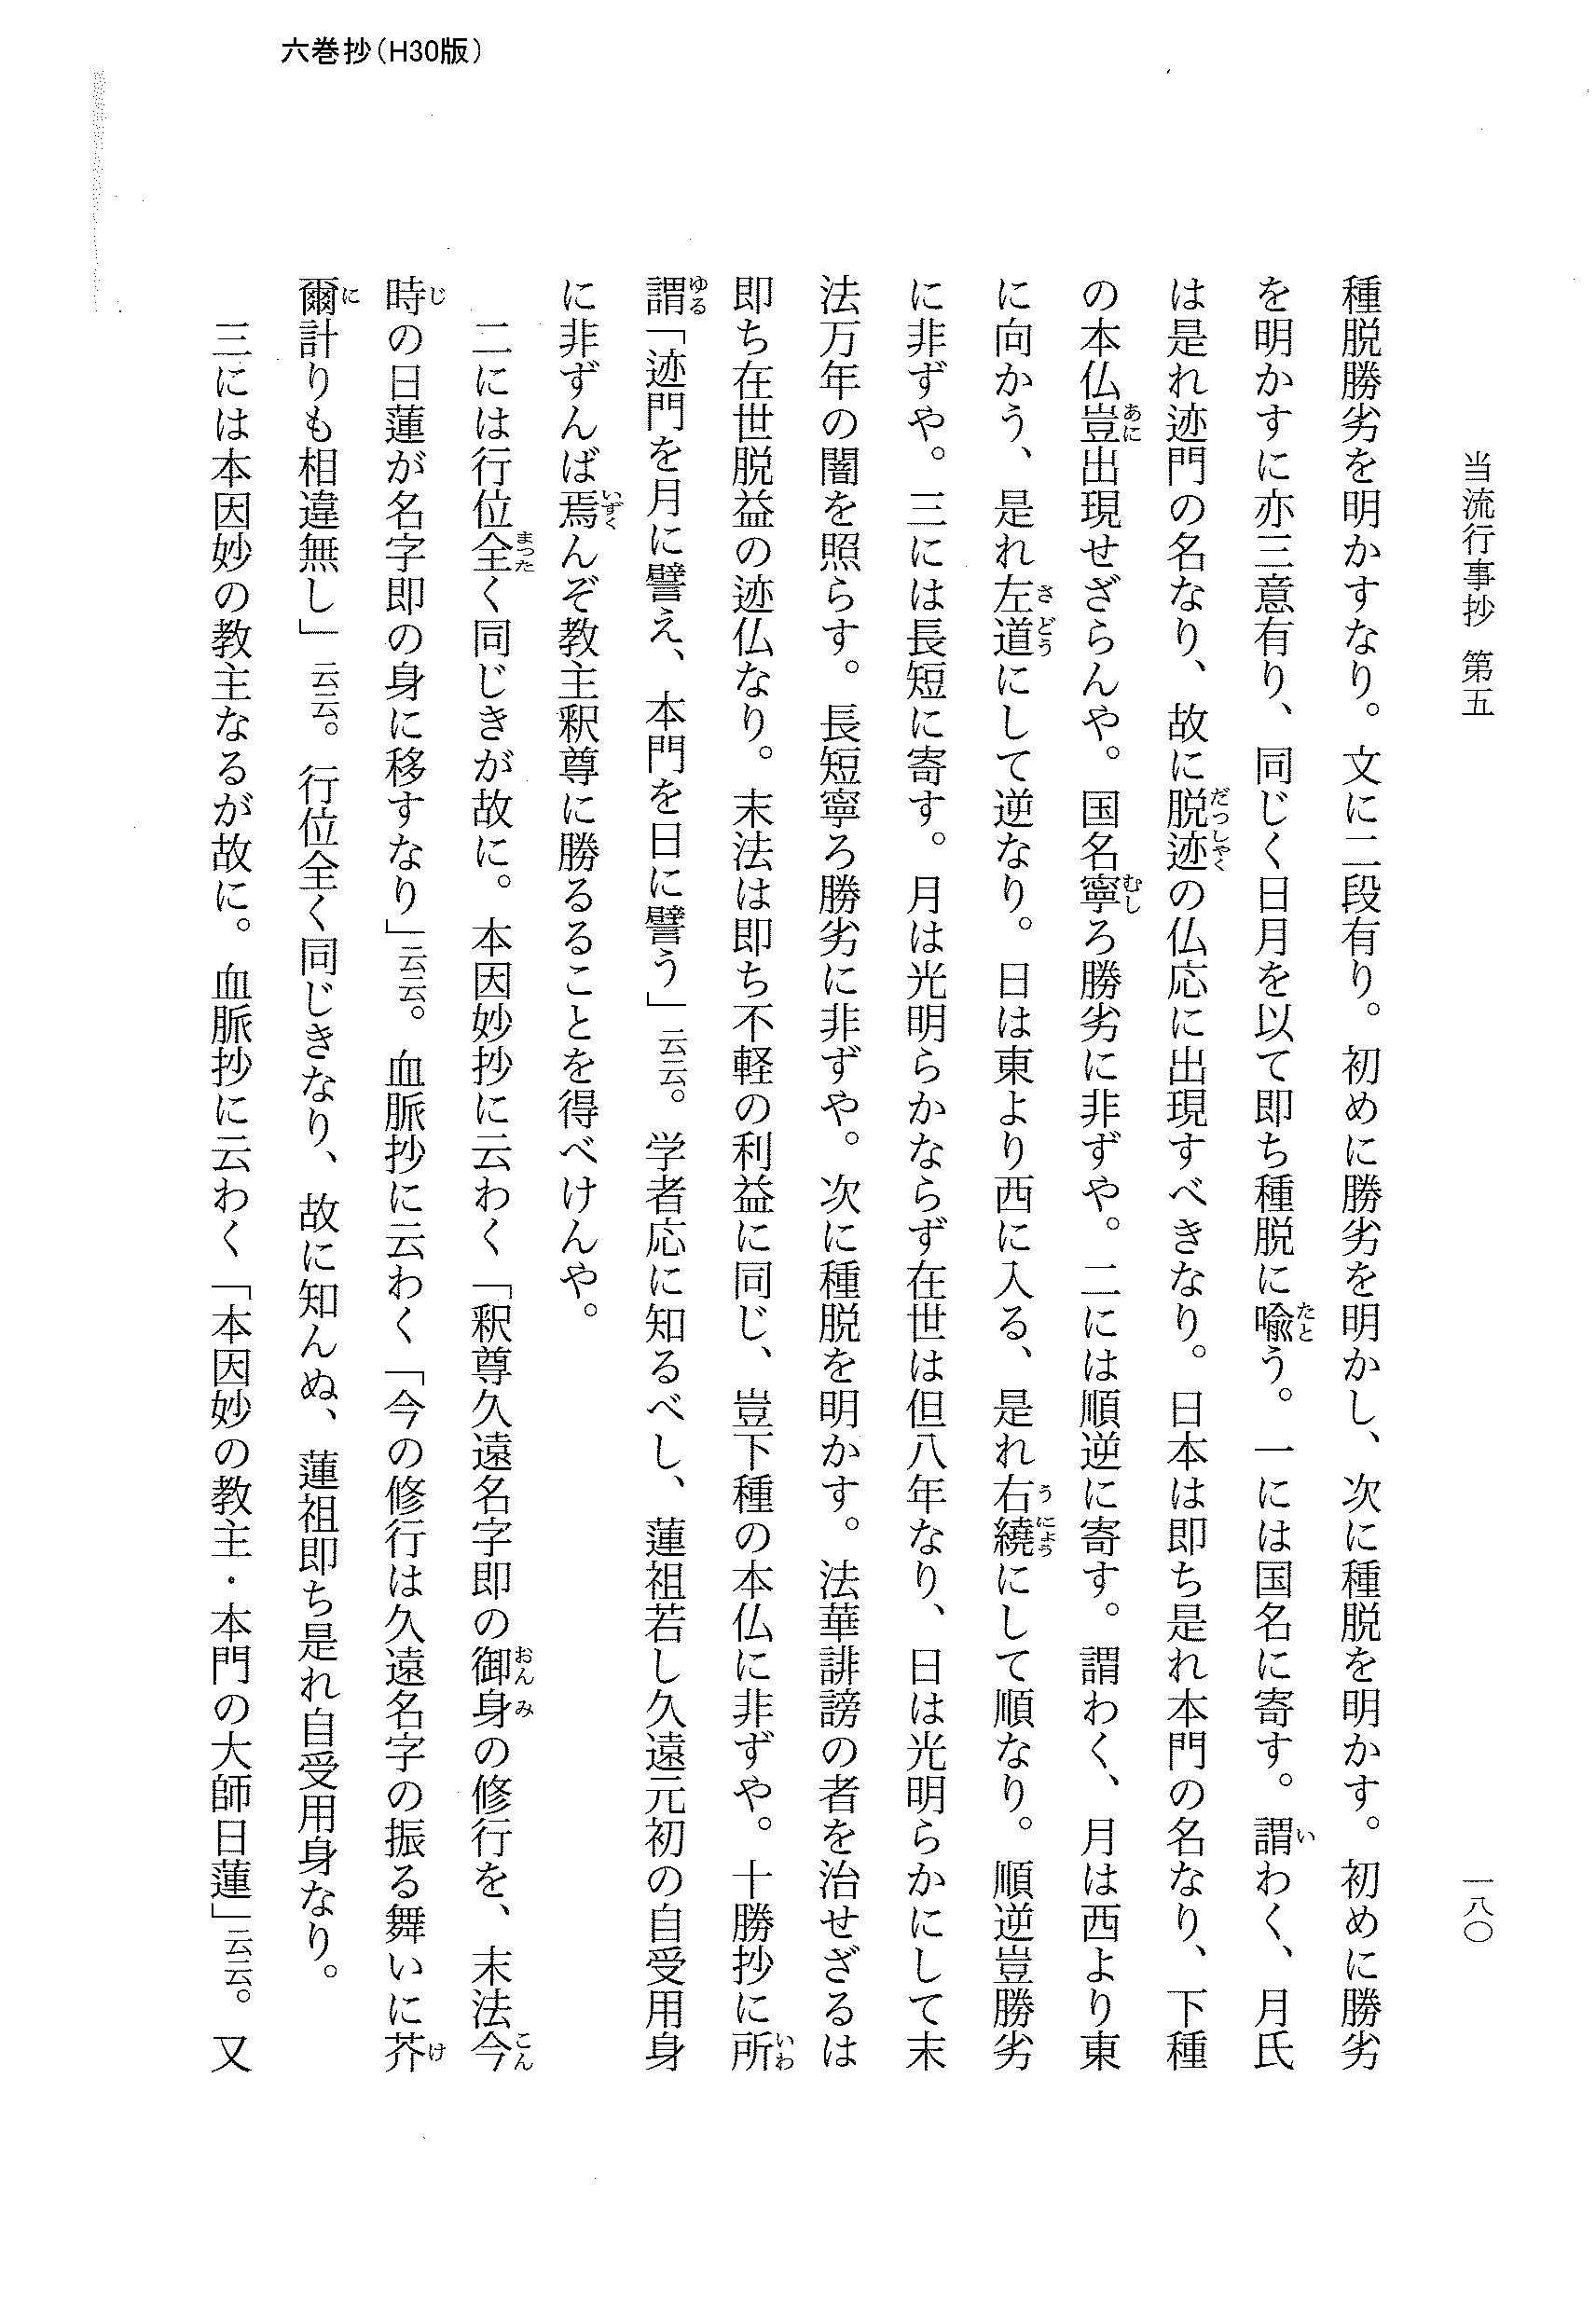 六巻抄（H30版）
当流行事抄 第五
一八〇
種脱勝劣を明かすなり。文に二段有り。初めに勝劣を明かし、次に種脱を明かす。初めに勝劣
を明かすに亦三意有り、同じく日月を以て即ち種脱に喩う。一には国名に寄す。謂わく、月氏
は是れ迹門の名なり、故に脱迹の仏応に出現すべきなり。日本は即ち是れ本門の名なり、下種
の本仏豈出現せざらんや。国名寧ろ勝劣に非ずや。二には順逆に寄す。謂わく、月は西より東
に向かう、是れ左道にして逆なり。日は東より西に入る、是れ右繞にして順なり。順逆豈勝劣
に非ずや。三には長短に寄す。月は光明らかならず在世は但八年なり、日は光明らかにして末
法万年の闇を照らす。長短寧ろ勝劣に非ずや。次に種脱を明かす。法華誹謗の者を治せざるは
即ち在世脱益の迹仏なり。末法は即ち不軽の利益に同じ、豈下種の本仏に非ずや。十勝抄に所
謂「迹門を月に譬え、本門を日に譬う」云云。学者応に知るべし、蓮祖若し久遠元初の自受用身
に非ずんば焉んぞ教主釈尊に勝るることを得べけんや。
二には行位全く同じきが故に。本因妙抄に云わく「釈尊久遠名字即の御身の修行を、末法今
時の日蓮が名字即の身に移すなり」云云。血脈抄に云わく「今の修行は久遠名字の振る舞いに芥
爾計りも相違無し」云云。行位全く同じきなり、故に知んぬ、蓮祖即ち是れ自受用身なり。
三には本因妙の教主なるが故に。血脈抄に云わく「本因妙の教主・本門の大師日蓮」云云。又